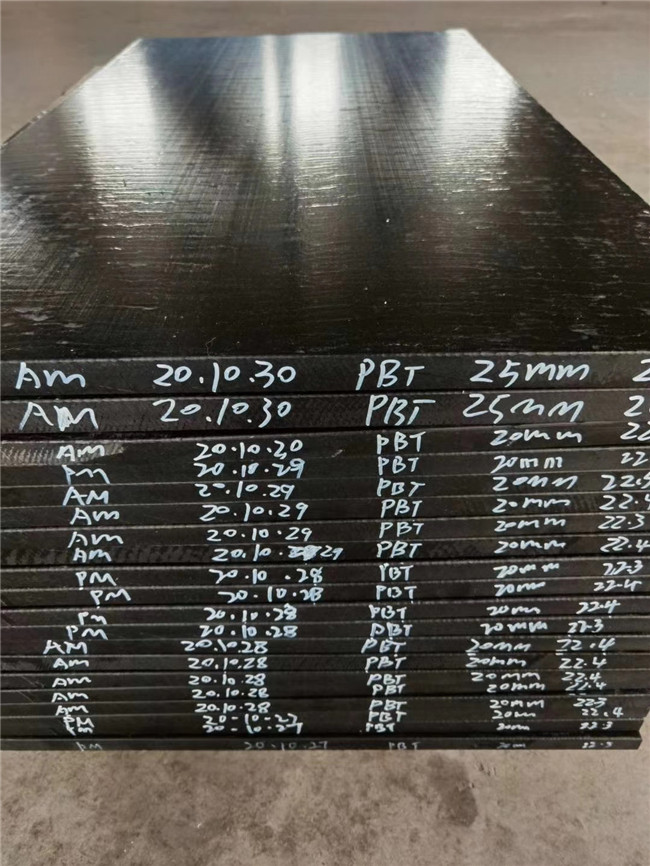 AM 20.10.30 PBT 25mm 2
AM 20.10.30 PBT 25mm 2
AM 20.10.30 PBT 20mm 22
PM 20.10.29 PBT 20mm 22
AM 20.10.29 PBT 20mm 22.5
AM 20.10.29 PBT 20mm 22.4
AM 20.10.29 PBT 20mm 22.3
AM 20.10.29 PBT 20mm 22.4
PM 20.10.28 PBT 20mm 22.3
PM 20.10.28 PBT 20mm 22.4
PM 20.10.28 PBT 20mm 22.4
PM 20.10.28 PBT 20mm 22.3
AM 20.10.28 PBT 20mm 22.4
AM 20.10.28 PBT 20mm 22.4
AM 20.10.28 PBT 20mm 22.4
AM 20.10.28 PBT 20mm 22.4
AM 20.10.28 PBT 20mm 22.3
PM 20-10-27 PBT 20mm 22.4
PM 20-10-27 PBT 20mm 22.3
AM 20.10.27 PBT 22.3